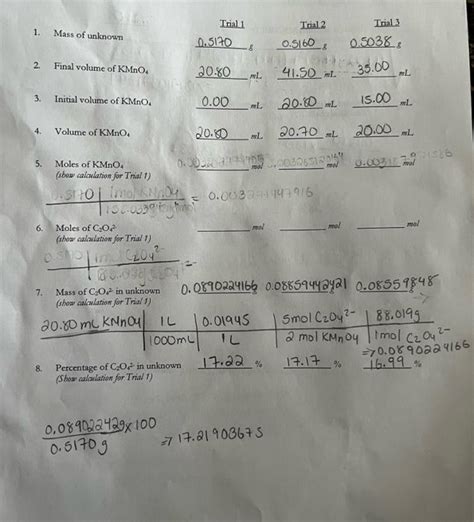 Trial 1 Trial 2 Trial 3
1. Mass of unknown 0.5170 g 0.5160 g 0.5038 g
2. Final volume of KMnO₄ 20.80 mL 41.50 mL 35.00 mL
3. Initial volume of KMnO₄ 0.00 mL 20.80 mL 15.00 mL
4. Volume of KMnO₄ 20.80 mL 20.70 mL 20.00 mL
5. Moles of KMnO₄ mol mol mol
(show calculation for Trial 1)
0.5170 1 mol KMnO₄ =
6. Moles of C₂O₄²⁻ mol mol mol
(show calculation for Trial 1)
1 mol C₂O₄²⁻ =
7. Mass of C₂O₄²⁻ in unknown 0.0890224166 0.08859442421 0.08559848
(show calculation for Trial 1)
20.80 mL KMnO₄ 1L 0.01945 5mol C₂O₄²⁻ 88.019g
1000mL 1L 2 mol KMnO₄ 1mol C₂O₄²⁻
⇒ 0.0890224166
8. Percentage of C₂O₄²⁻ in unknown 17.22 % 17.17 % 16.99 %
(Show calculation for Trial 1)
0.089022429 x 100
0.5170 g ⇒ 17.21903675